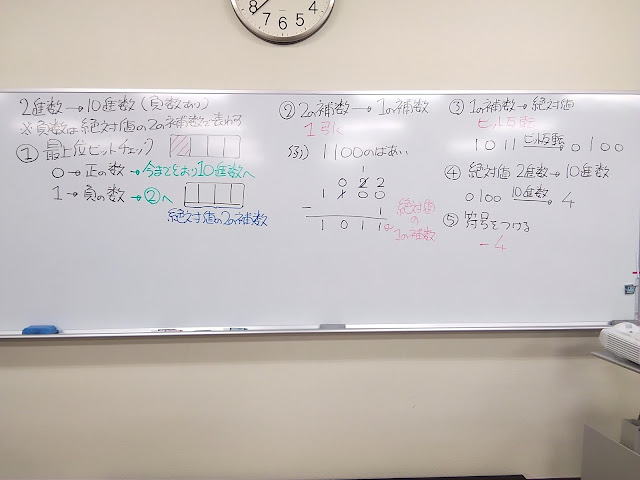 2進数→10進数(負数あり)
※負数は絶対値の2の補数で表わす
① 最上位ビットチェック
0→正の数→今までどおり10進数へ
1→負の数→②へ
絶対値の2の補数
② 2の補数→1の補数
1引く
例) 1100のばあい
1
0 2 2
1 1 0 0
− 1
1 0 1 1
絶対値
の
1の補数
③ 1の補数→絶対値
ビット反転
1011 ビット反転→ 0100
④ 絶対値 2進数→10進数
0100 10進数→ 4
⑤ 符号をつける
−4
8 7 6 5 4